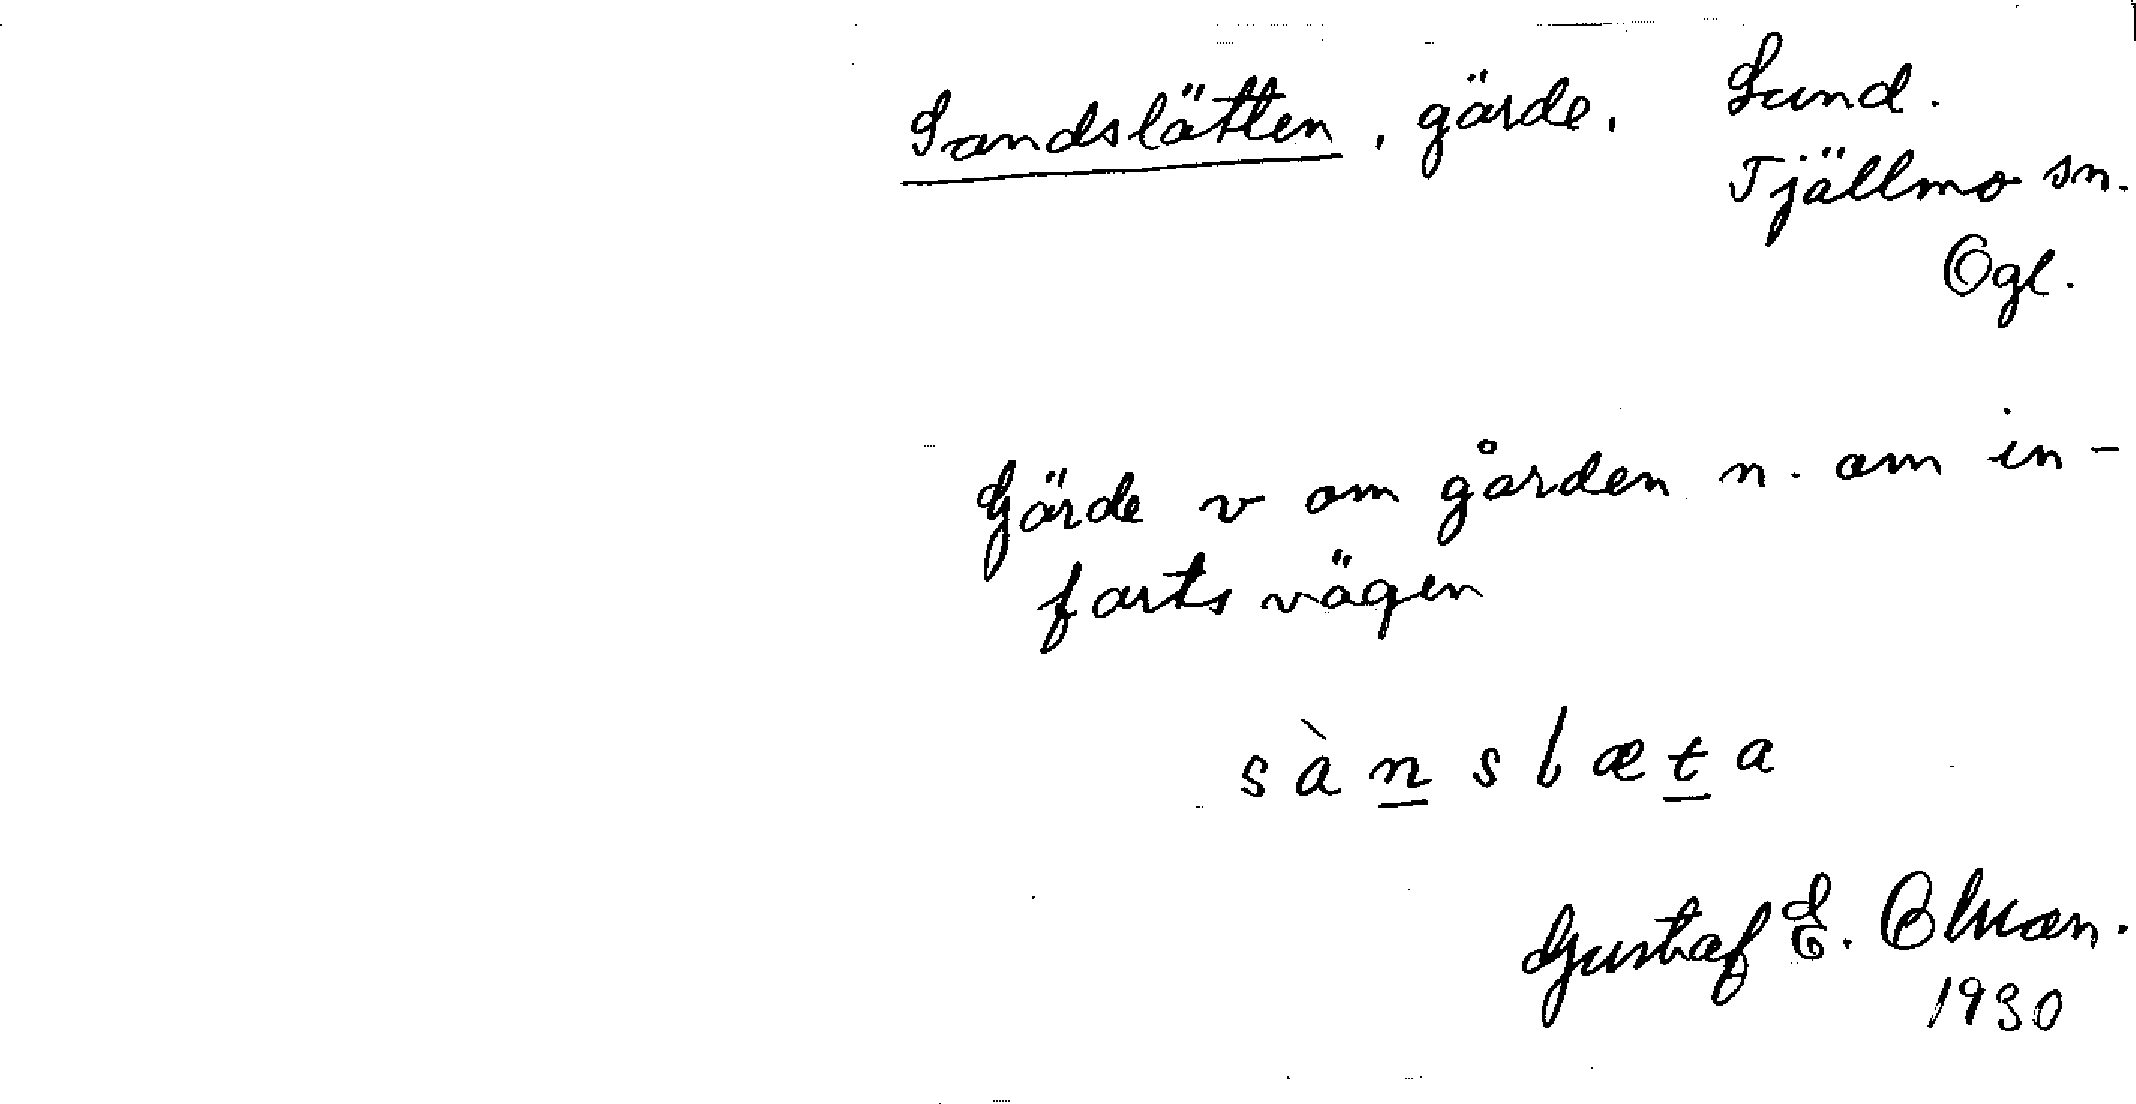 Sandslätten, gärde. Sund.
Tjällmo sn.
Ögl.
Gärde v om gården n. om in-
farts vägen
sànslæta
Gustaf E. Olsson.
1930